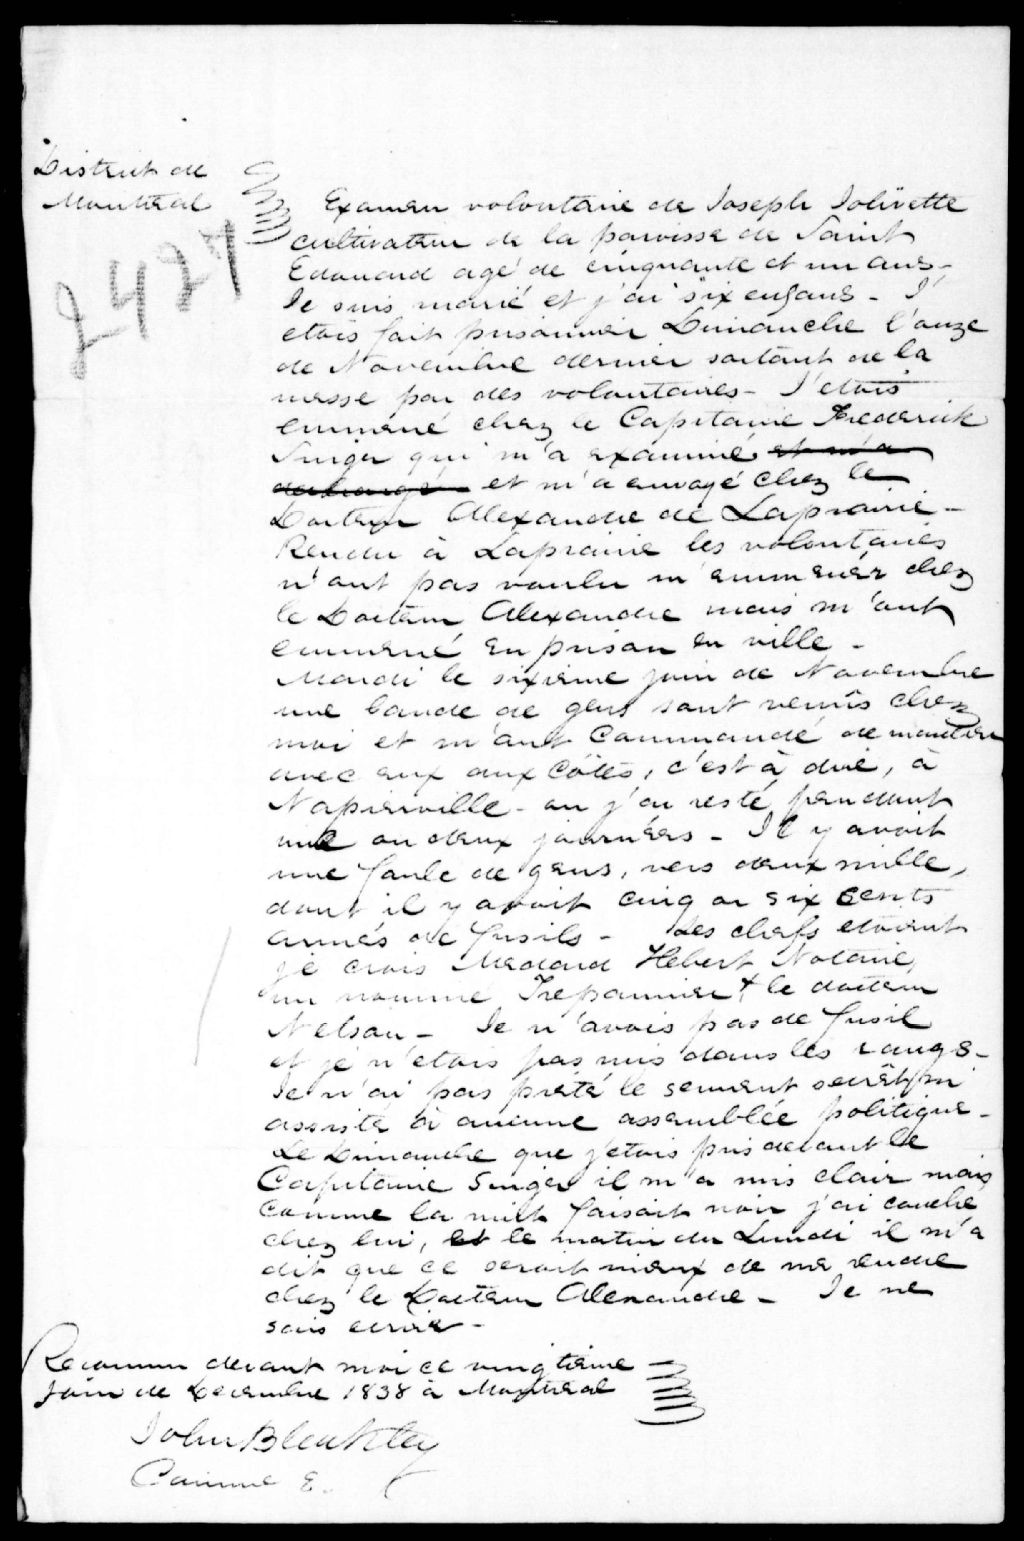 District de
Montréal
2427
Examen volontaire de Joseph Jolivette
cultivateur de la paroisse de Saint
Edouard agé de cinquante et un ans -
Je suis marié et j'ai six enfans - J'
etois fait prisonnier Dimanche l'onze
de Novembre dernier sortant de la
messe par des volontaires - J'etois
emmené chez le Capitaine Frederick
Singer qui m'a examiné et m'a
dechargé et m'a envoyé chez le
Docteur Alexandre de Laprairie -
Rendu à Laprairie les volontaires
n'ont pas voulu m'emmener chez
le Docteur Alexandre mais m'ont
emmené en prison en ville -
Mardi le sixieme jour de Novembre
une bande de gens sont venus chez
moi et m'ont commandé de monter
avec eux aux Côtes, c'est à dire, à
Napierville - ou j'ai resté pendant
une ou deux journées - Il y avoit
une foule de gens, vers deux mille,
dont il y avoit cinq ou six cents
armés de fusils - Les chefs etoient
je crois Medard Hebert Notaire,
un nommé Trepannier & le docteur
Nelson - Je n'avois pas de fusil
et je n'etois pas mis dans les rangs -
Je n'ai pas preté le serment secrêt ni
assisté à aucune assemblée politique -
Le Dimanche que j'etois pris devant le
Capitaine Singer il m'a mis clair mais
comme la nuit faisoit noir j'ai couché
chez lui, et le matin du Lundi il m'a
dit que ce seroit mieux de me rendre
chez le Docteur Alexandre - Je ne
sais ecrire -
Reconnu devant moi ce vingtieme
Jour de Decembre 1838 à Montréal
John Bleakley
Comme E.